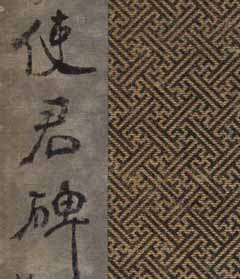 使君碑